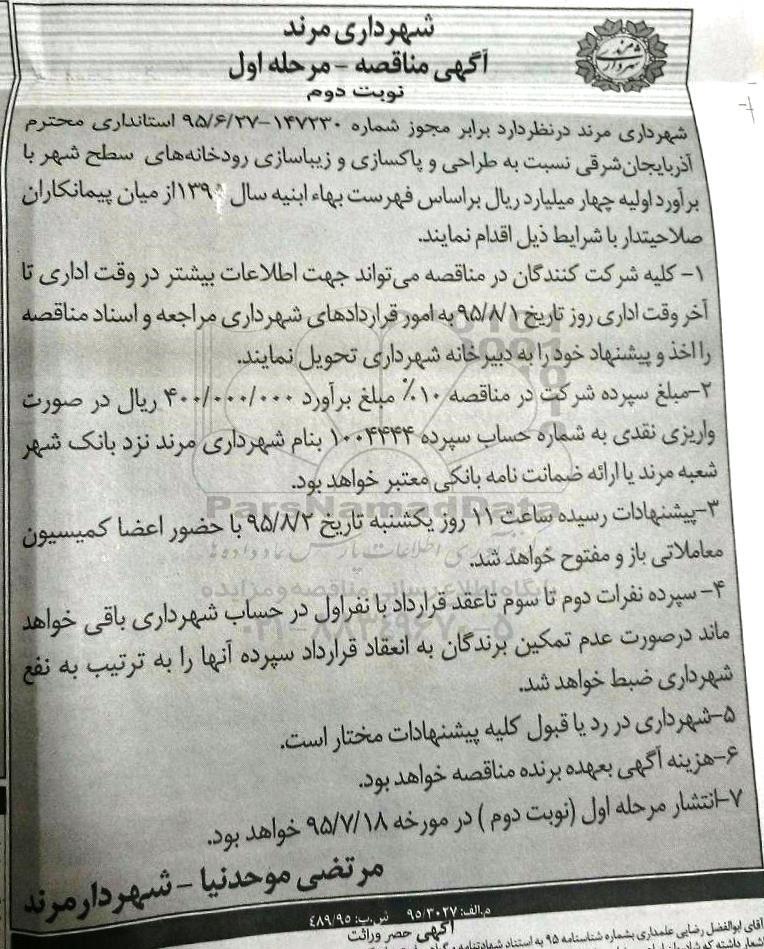 شهرداری مرند
آگهی مناقصه - مرحله اول
نوبت دوم
شهرداری مرند درنظردارد برابر مجوز شماره ۱۴۷۲۳۰-۹۵/۶/۲۷ استانداری محترم
آذربایجان‌شرقی نسبت به طراحی و پاکسازی و زیباسازی رودخانه‌های سطح شهر با
برآورد اولیه چهار میلیارد ریال براساس فهرست بهاء ابنیه سال از میان پیمانکاران
صلاحیتدار با شرایط ذیل اقدام نمایند.
۱- کلیه شرکت کنندگان در مناقصه می‌تواند جهت اطلاعات بیشتر در وقت اداری تا
آخر وقت اداری روز تاریخ ۹۵/۸/۱ به امور قراردادهای شهرداری مراجعه و اسناد مناقصه
را اخذ و پیشنهاد خود را به دبیرخانه شهرداری تحویل نمایند.
۲-مبلغ سپرده شرکت در مناقصه ۱۰٪ مبلغ برآورد ۴۰۰/۰۰۰/۰۰۰ ریال در صورت
واریزی نقدی به شماره حساب سپرده ۱۰۰۴۴۴۴ بنام شهرداری مرند نزد بانک شهر
شعبه مرند یا ارائه ضمانت نامه بانکی معتبر خواهد بود.
۳-پیشنهادات رسیده ساعت ۱۱ روز یکشنبه تاریخ ۹۵/۸/۲ با حضور اعضا کمیسیون
معاملاتی باز و مفتوح خواهد شد.
۴- سپرده نفرات دوم تا سوم تاعقد قرارداد با نفراول در حساب شهرداری باقی خواهد
ماند درصورت عدم تمکین برندگان به انعقاد قرارداد سپرده آنها را به ترتیب به نفع
شهرداری ضبط خواهد شد.
۵-شهرداری در رد یا قبول کلیه پیشنهادات مختار است.
۶-هزینه آگهی بعهده برنده مناقصه خواهد بود.
۷-انتشار مرحله اول (نوبت دوم) در مورخه ۹۵/۷/۱۸ خواهد بود.
مرتضی موحدنیا - شهردار مرند
م.الف: ۹۵/۳۰۲۷ ش.ب: ۴۸۹/۹۵
آگهی حصر وراثت
آقای ابوالفضل رضایی علمداری بشماره شناسنامه ۹۵ به استناد شهادتنامه و
ParsNamadData
پایگاه اطلاع رسانی مناقصه و مزایده
۰۲۱-۸۸۳۴۹۶۷۰-۵